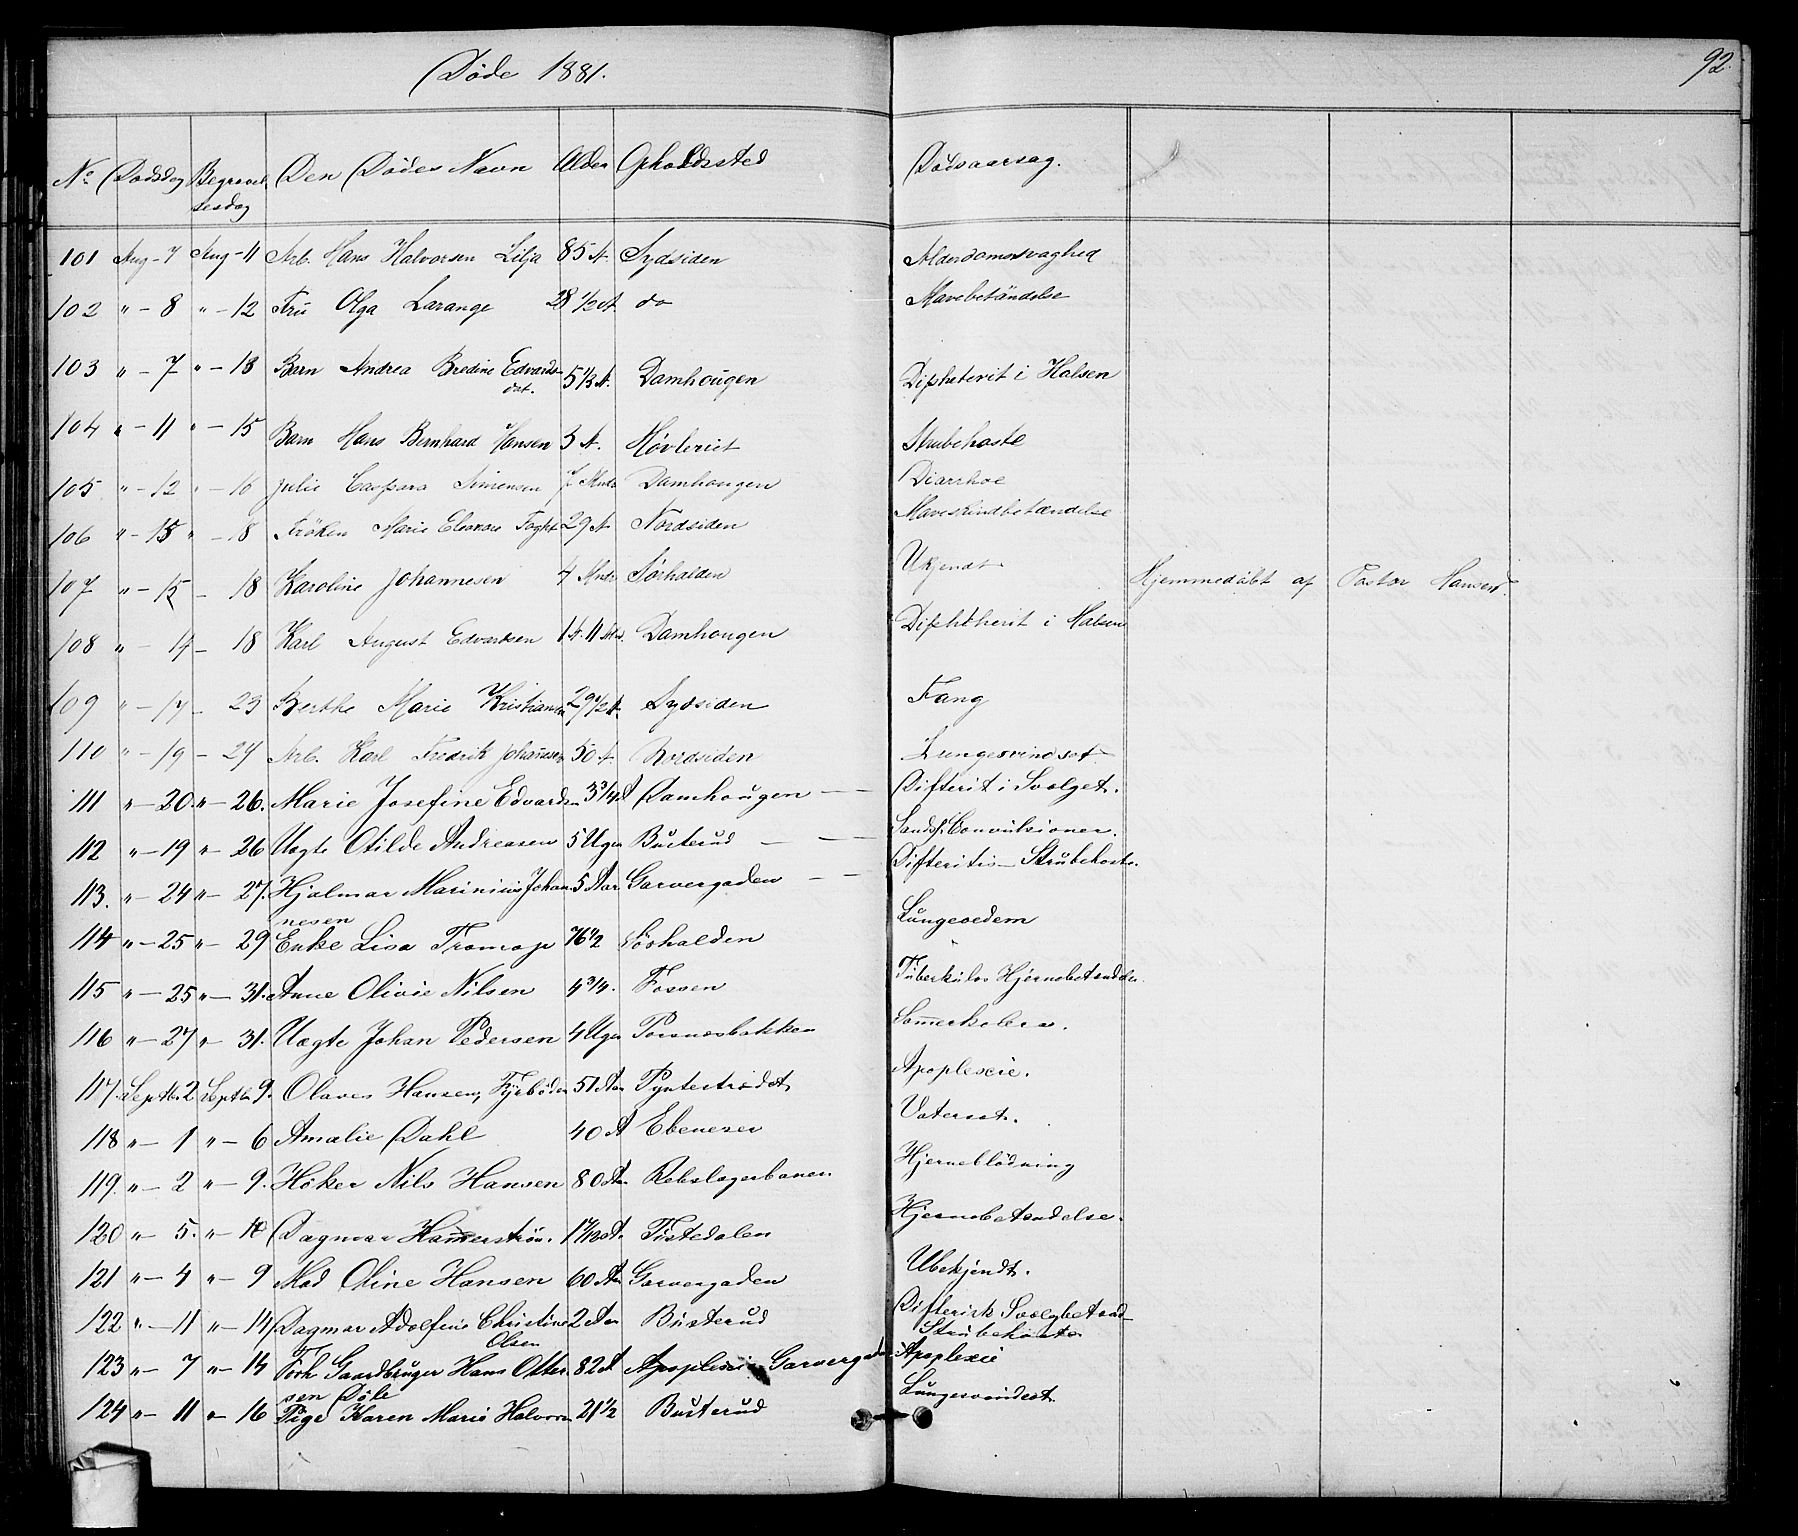 Døde 1881.
92.
No Dødsdag Begravelsesdag Den Dødes Navn Alder Opholdssted Dødsaarsag.
101 Aug - 7 Aug - 11 Arb. Hans Halvorsen Lilja 85 A. Sydsiden Alderdomssvaghed
102 " - 8 " - 12 Fru Olga Larange 28 1/2 A. do Mavebetändelse
103 " - 7 " - 13 Barn Andrea Bredine Edvardsdat. 5 1/3 A. Damhougen Dipheterit i Halsen
104 " - 11 " - 15 Barn Hans Bernhard Hansen 3 A. Høvleriet Strubehoste
105 " - 12 " - 16 Julie Caspara Simensen 7 Mndr Damhougen Diarrhoe
106 " - 15 " - 18 Fröken Marie Eleonore Foght 29 A. Nordsiden Maveskindbetændelse
107 " - 15 - 18 Karoline Johannesen 4 Mndr Sørhalden Ukjendt Hjemmedøbt af Pastor Hansen
108 " - 14 - 18 Karl August Edvardsen 1 A. 11 Mdr. Damhougen Diphtherit i Halsen
109 " - 17 - 23 Berthe Marie Kristiansen 29 1/2 A. Sydsiden Fang
110 " - 19 - 24 Arb. Karl Fredrik Johansen 50 A. Nordsiden Lungesvindsot
111 " - 20. " - 26. Marie Josefine Edvardsen 3 3/4 A Damhougen — Difterit i Svælget.
112 " - 19 " - 26 Uegte Otilde Andreasen 5 Uger Busterud — — Sands. Convulsioner.
113. " - 24 " - 27. Hjalmar Marinius Johannesen 5 Aar Garvergaden — — Difteritis - Strubehoste.
114 " - 25 " - 29 Enke Lisa 76 1/2 Sörhalden Lungeoedem
115 " - 25 " - 31. Anne Olivie Nilsen 4 3/4. Fossen Tuberkulos Hjernebetændelse
116 " - 27 " - 31. Uegte Johan Pedersen 4 Uger Torsnesbakken Somerkolera.
117. Septb. 2 Septbr 9. Olaves Hansen, Fyrbøder 51 Aar Pyntestrædet Apoplexie.
118 " - 1 " - 6 Amalie Dahl 40 A Ebeneser Vatersot.
119. " - 2 " - 9. Høker Nils Hansen 80 Aar. Rebslagerbanen Hjerneblödning
120 " - 5. " - 10 Dagmar Hamerström. A. Tistedalen Hjernebetændelse.
121 " - 4 " - 9 Mad Oline Hansen 60 Aar Garvergaden Ubekjendt.
122 " - 11 " - 14 Dagmar Adolfine Christine Olsen 2 Aar Busterud Difterisk Svælgbetænd- Strubehoste
123 " - 7 " - 14 Forh Gaardbruger Hans Ottersen Døle 82 A Apoplexie Garvergaden Apoplexie
124 " - 11 " - 16 Pige Karen Marie Halvorsen 21 1/2 Busterud Lungesvindsot